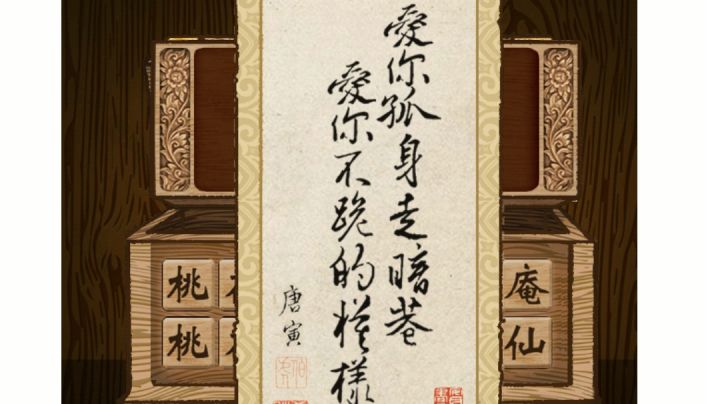 愛你孤身走暗巷
愛你不跪的模樣
唐寅
桃
庵
桃
仙